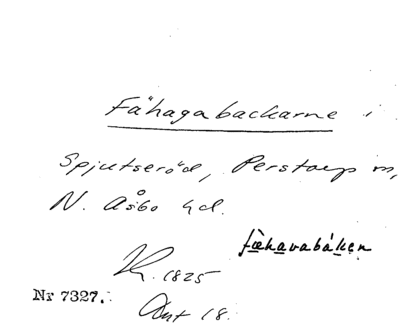 Fähagabackarne i
Spjutseröd, Perstorp m,
N. Åsbo hd.
fæhavabáken
Lk. 1825
Nr 7327.
Akt 18.